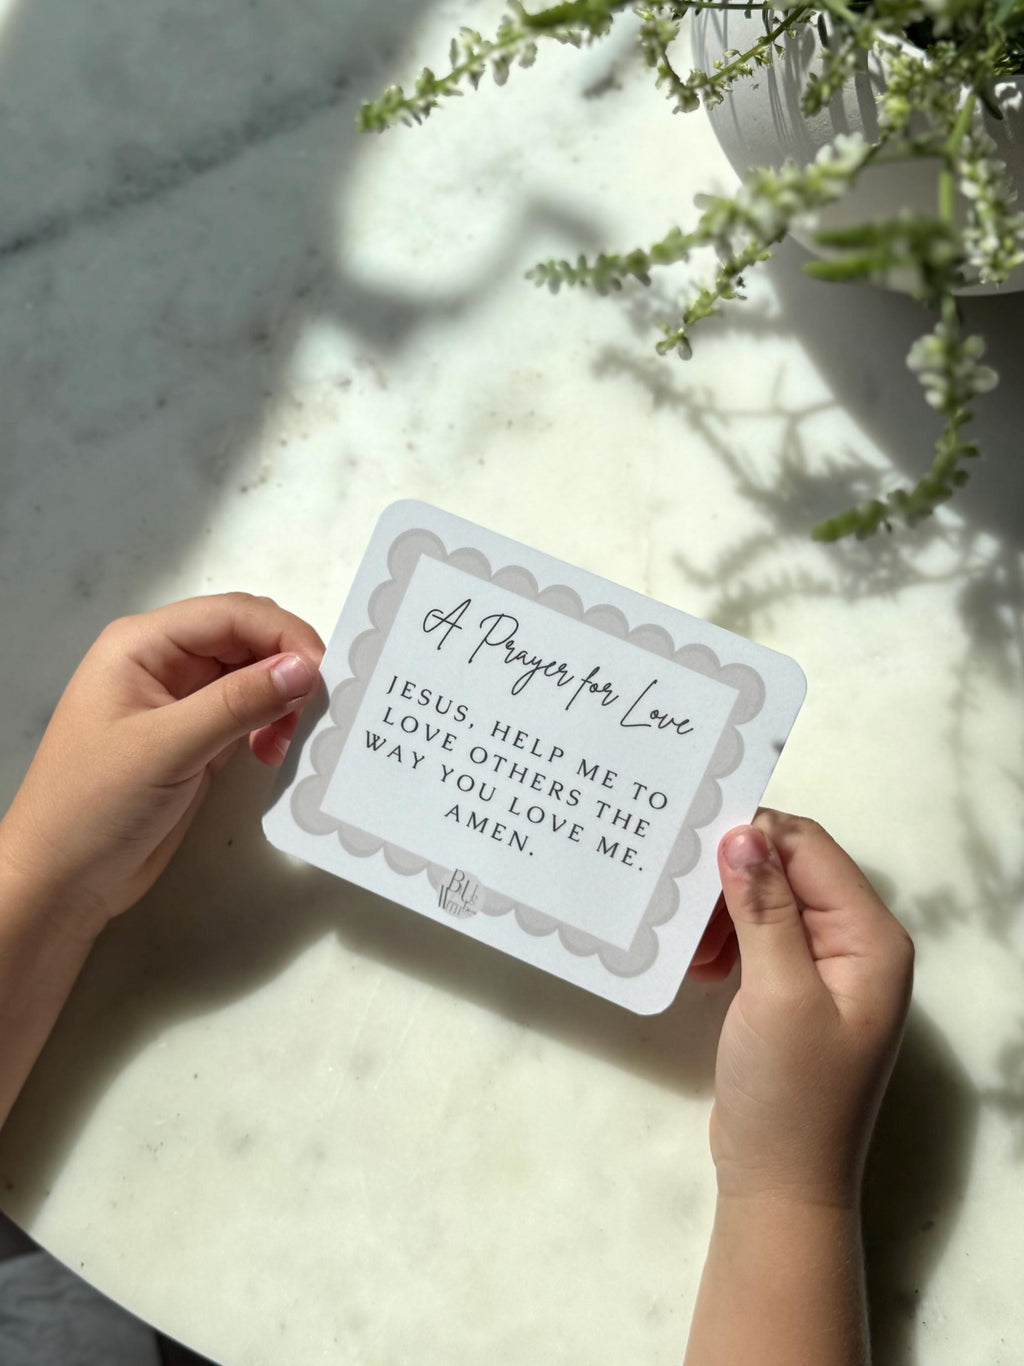 A Prayer for Love
JESUS, HELP ME TO
LOVE OTHERS THE
WAY YOU LOVE ME.
AMEN.